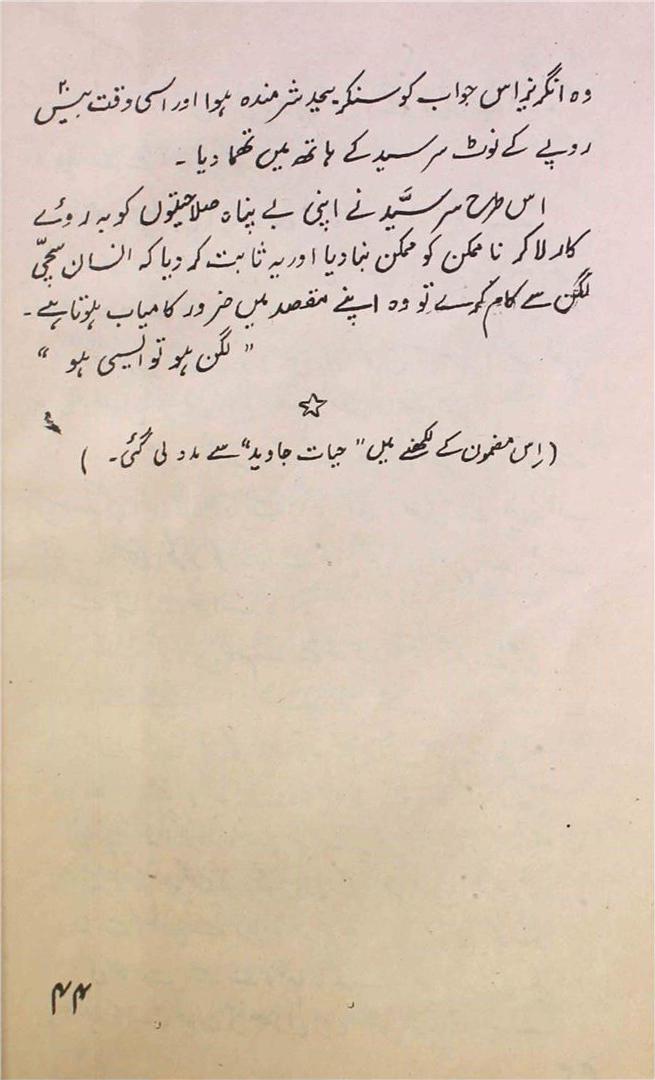 وہ انگریز اس جواب کو سنکر بیحد شرمندہ ہوا اور اسی وقت بیس۲۰
روپے کے نوٹ سر سید کے ہاتھ میں تھما دیا ۔
اس طرح سر سیَّد نے اپنی بے پناہ صلاحیتوں کو بہ روئے
کار لا کر نا ممکن کو ممکن بنا دیا اور یہ ثابت کر دیا کہ انسان سچّی
لگن سے کام کرے تو وہ اپنے مقصد میں ضرور کامیاب ہوتا ہے ۔
" لگن ہو تو ایسی ہو "
☆
( اِس مضمون کے لکھنے میں "حیات جاوید" سے مدد لی گئی ۔ )
۴۴